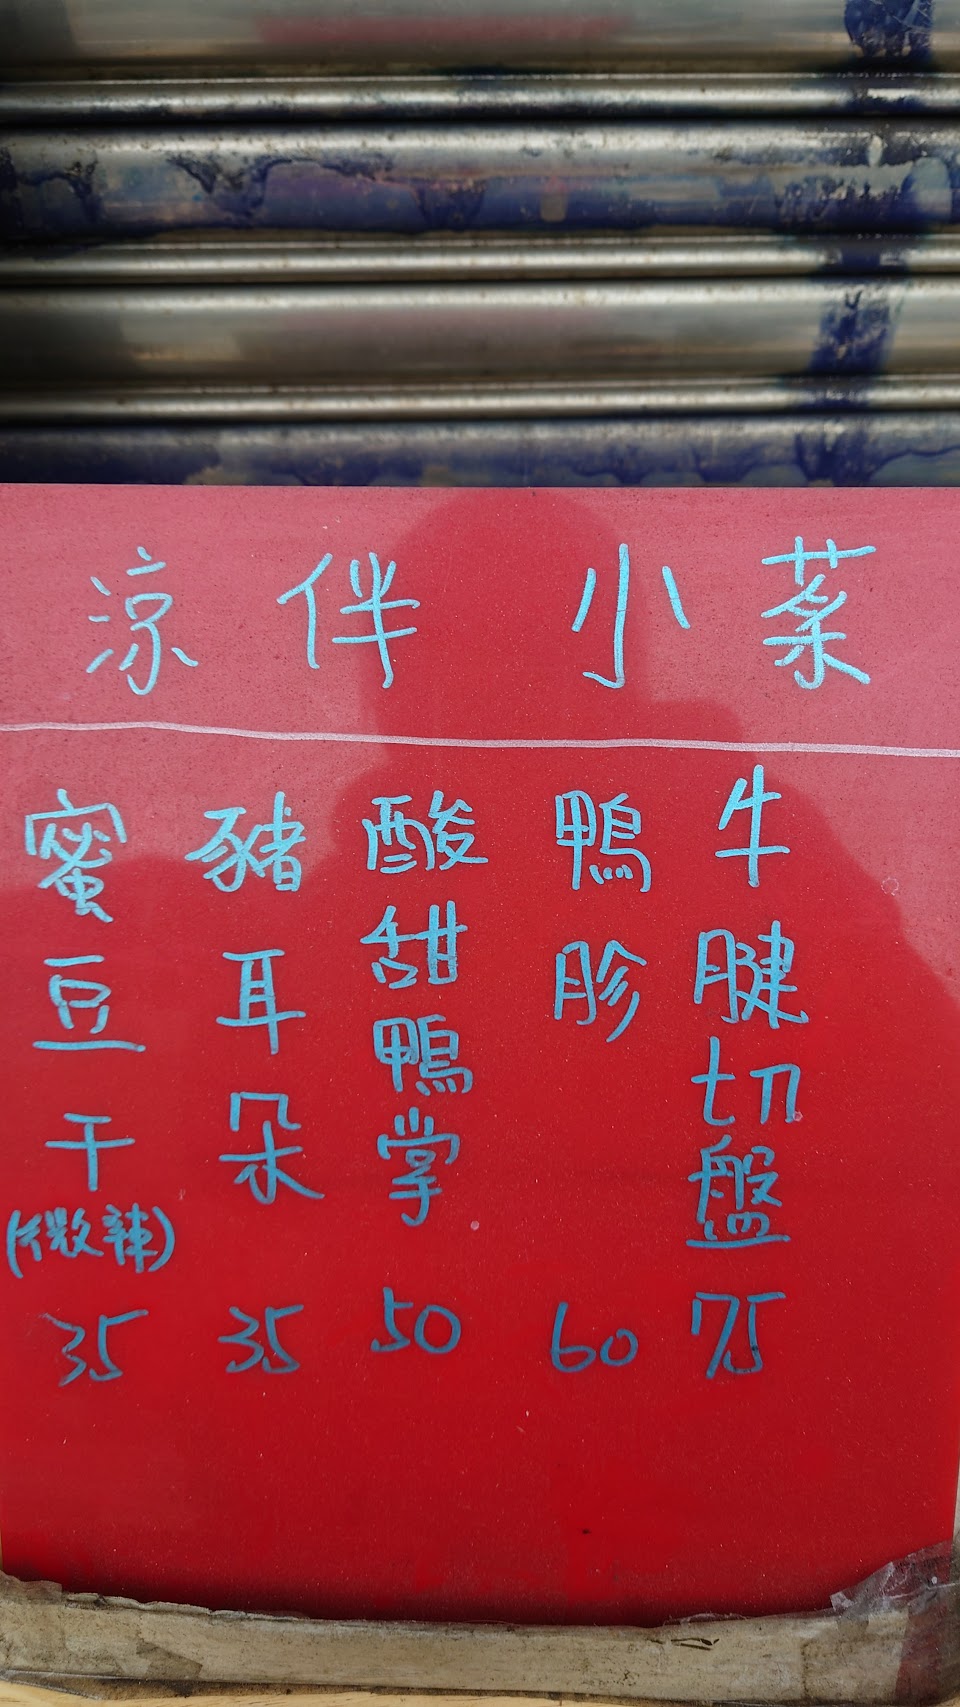 涼伴小菜
蜜豆干
(微辣)
35
豬耳朵
35
酸甜鴨掌
50
鴨胗
60
牛腱切盤
75